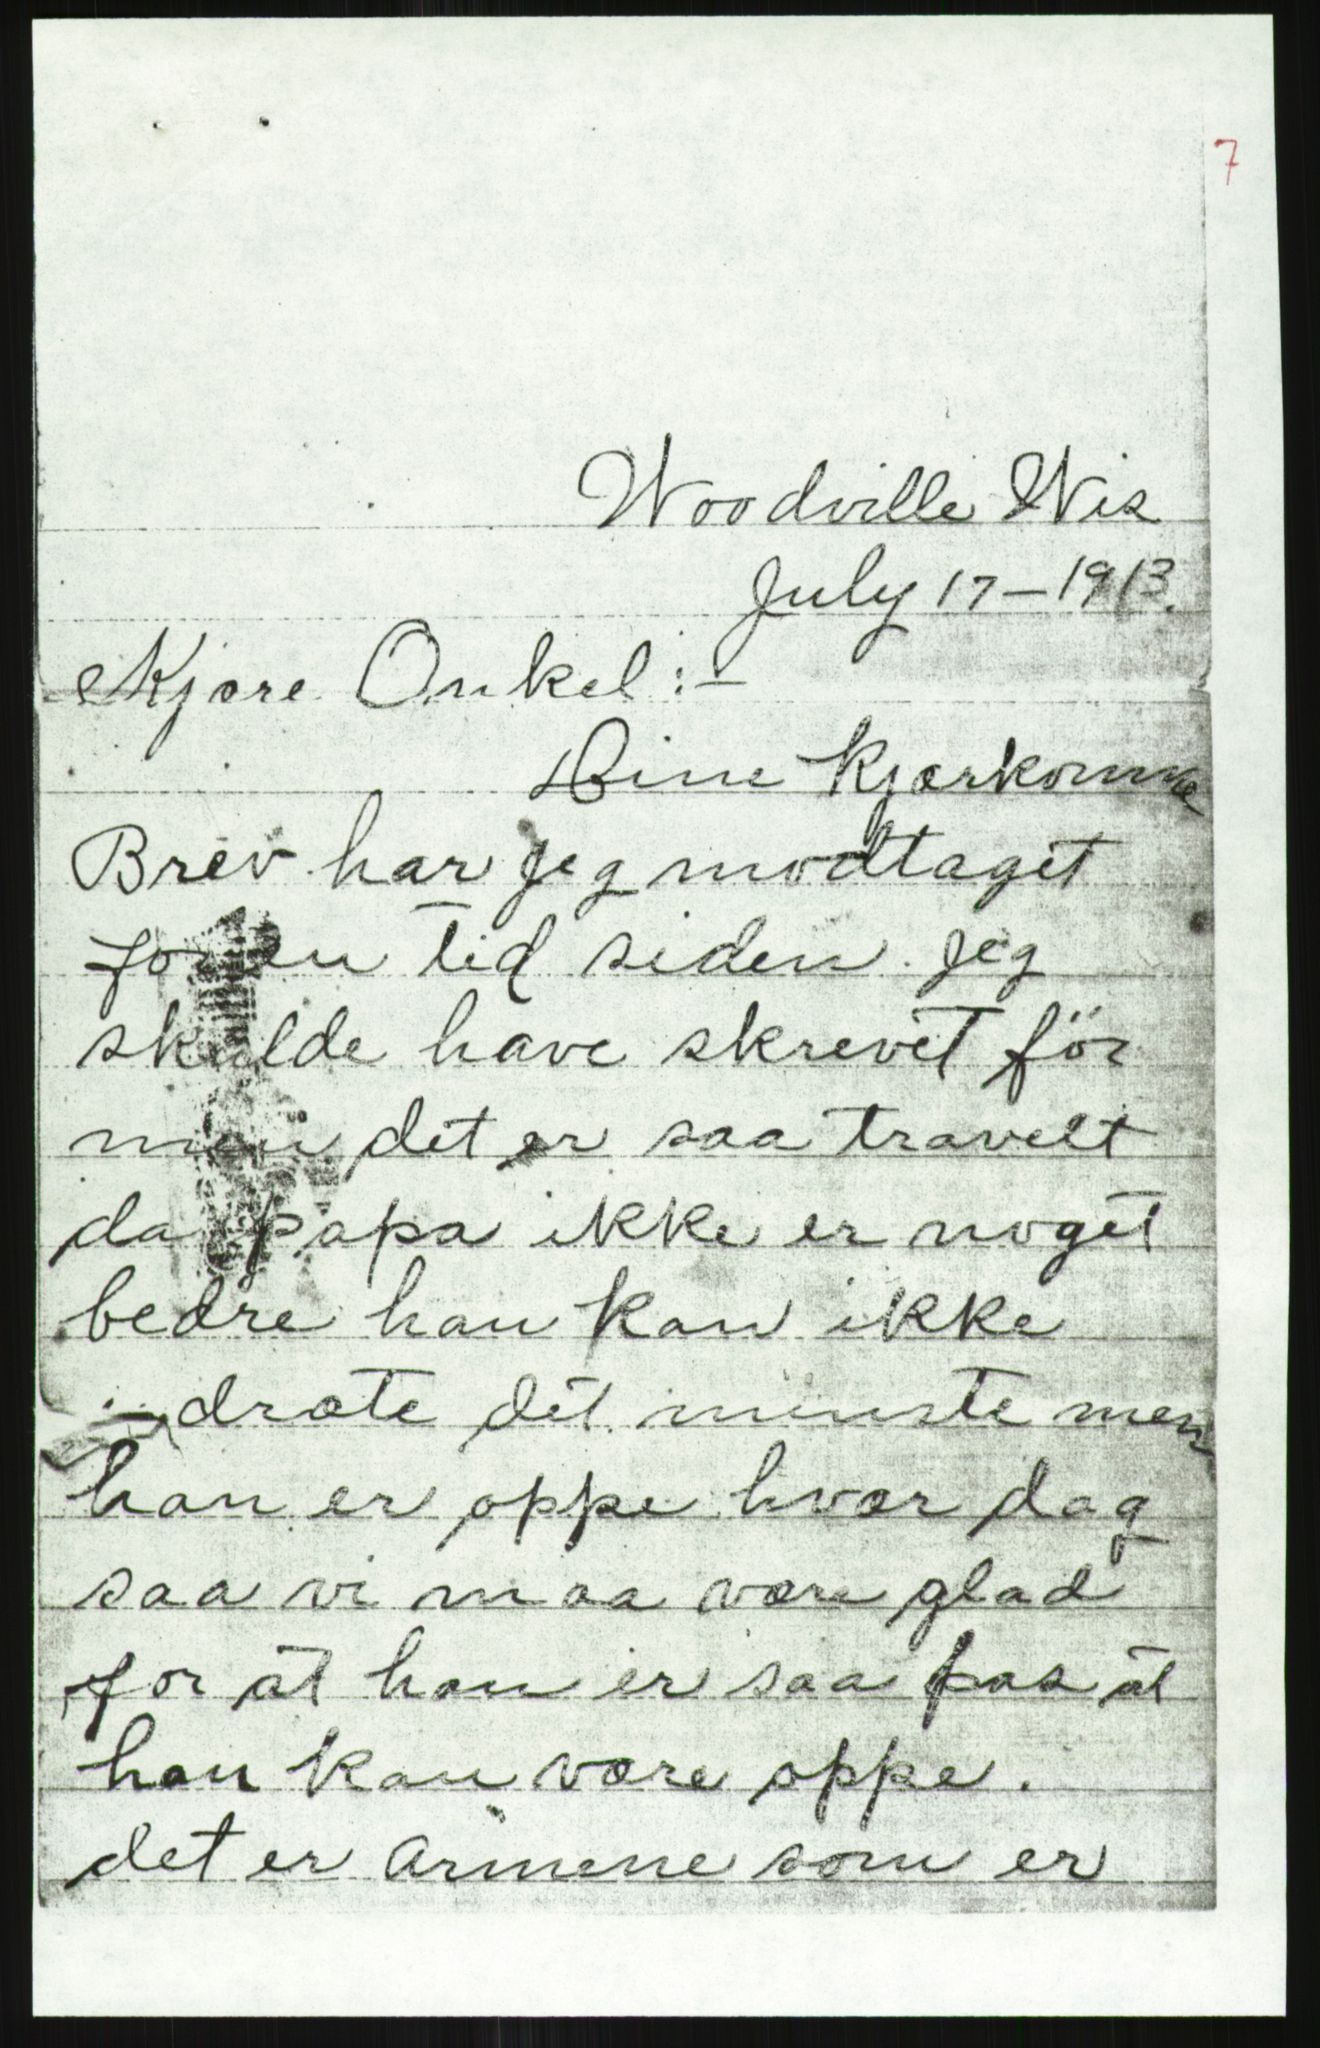 7
Woodville Wis
July 17-1913.
Kjære Onkel:-
Dine kjærkomne
Brev har jeg modtaget
for en tid siden. jeg
skulde have skrevet för
men det er saa travelt
da papa ikke er noget
bedre han kan ikke
dræte det minste men
han er oppe hvær dag
saa vi maa være glad
for at han er saa pas at
han kan være oppe.
det er armene som er